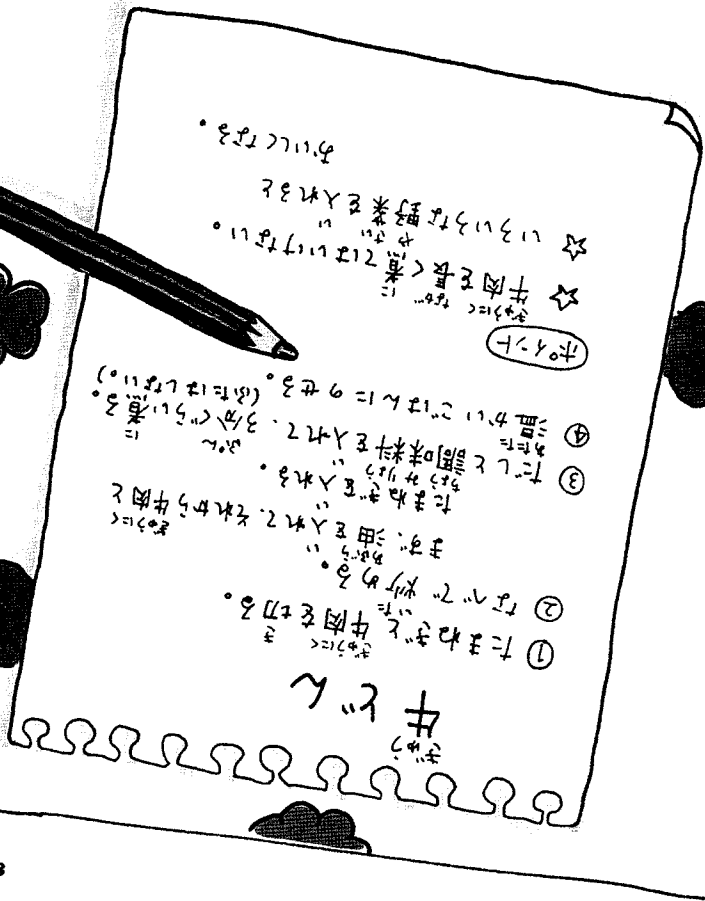 牛どん
① たまねぎと牛肉を切る。
② なべで炒める。
まず、油を入れて、それから牛肉と
たまねぎを入れる。
③ だしと調味料を入れて、3分ぐらい煮る。
(ふたはしない。)
④ 温かいごはんにのせる。
ポイント
☆ 牛肉を長く煮てはいけない。
☆ いろいろな野菜を入れると
おいしくなる。